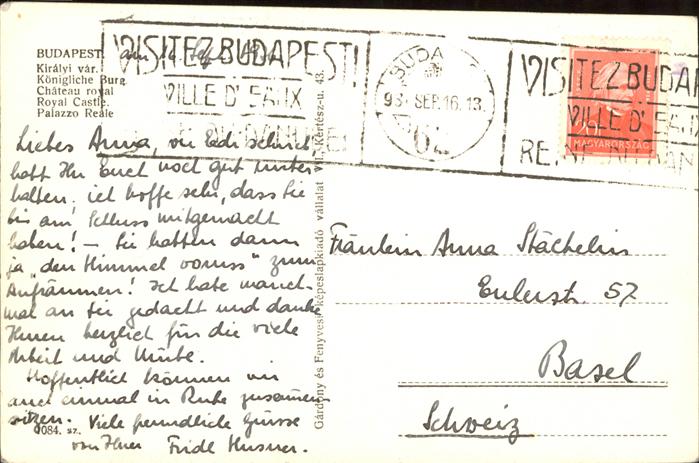 BUDAPEST
Királyi vár.
Königliche Burg.
Château royal
Royal Castle.
Palazzo Reale
VISITEZ BUDAPEST!
VILLE D'EAUX
BUDA
93 SEP.16.13.
62
VISITEZ BUDAP
VILLE D'EAUX
MAGYARORSZÁG
Liebes Anna,
habt Ihr Euch noch gut unter-
halten, ich hoffe sehr, dass Sie
bis am Schluss mitgemacht
haben! – Sie hatten dann
ja „den Himmel voraus" zum
Aufräumen! Ich habe manch-
mal an Sie gedacht und danke
Ihnen herzlich für die viele
Arbeit und Mühe.
Hoffentlich können wir
auch einmal in Ruhe zusammen
sitzen. Viele freundliche Grüsse
von Ihrer Fridl Husner.
1084. sz.
Gárdony és Fenyvesi képeslapkiadó vállalat VII. Kertész-u. 43.
Fräulein Anna Stächelin
Eulerstr 57
Basel
Schweiz